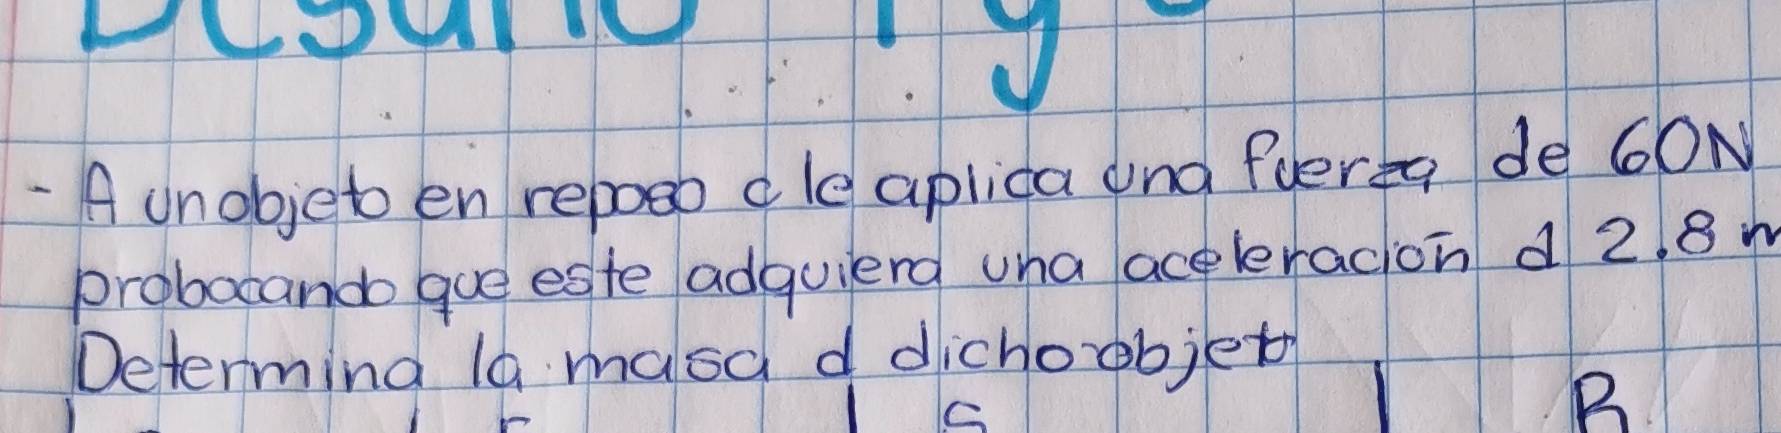 - A un objeto en reposo c le aplica una fuerza de 60N
probocando que este adquiera una aceleración d 2.8 m
Determina la masa d dicho objeto
F S R